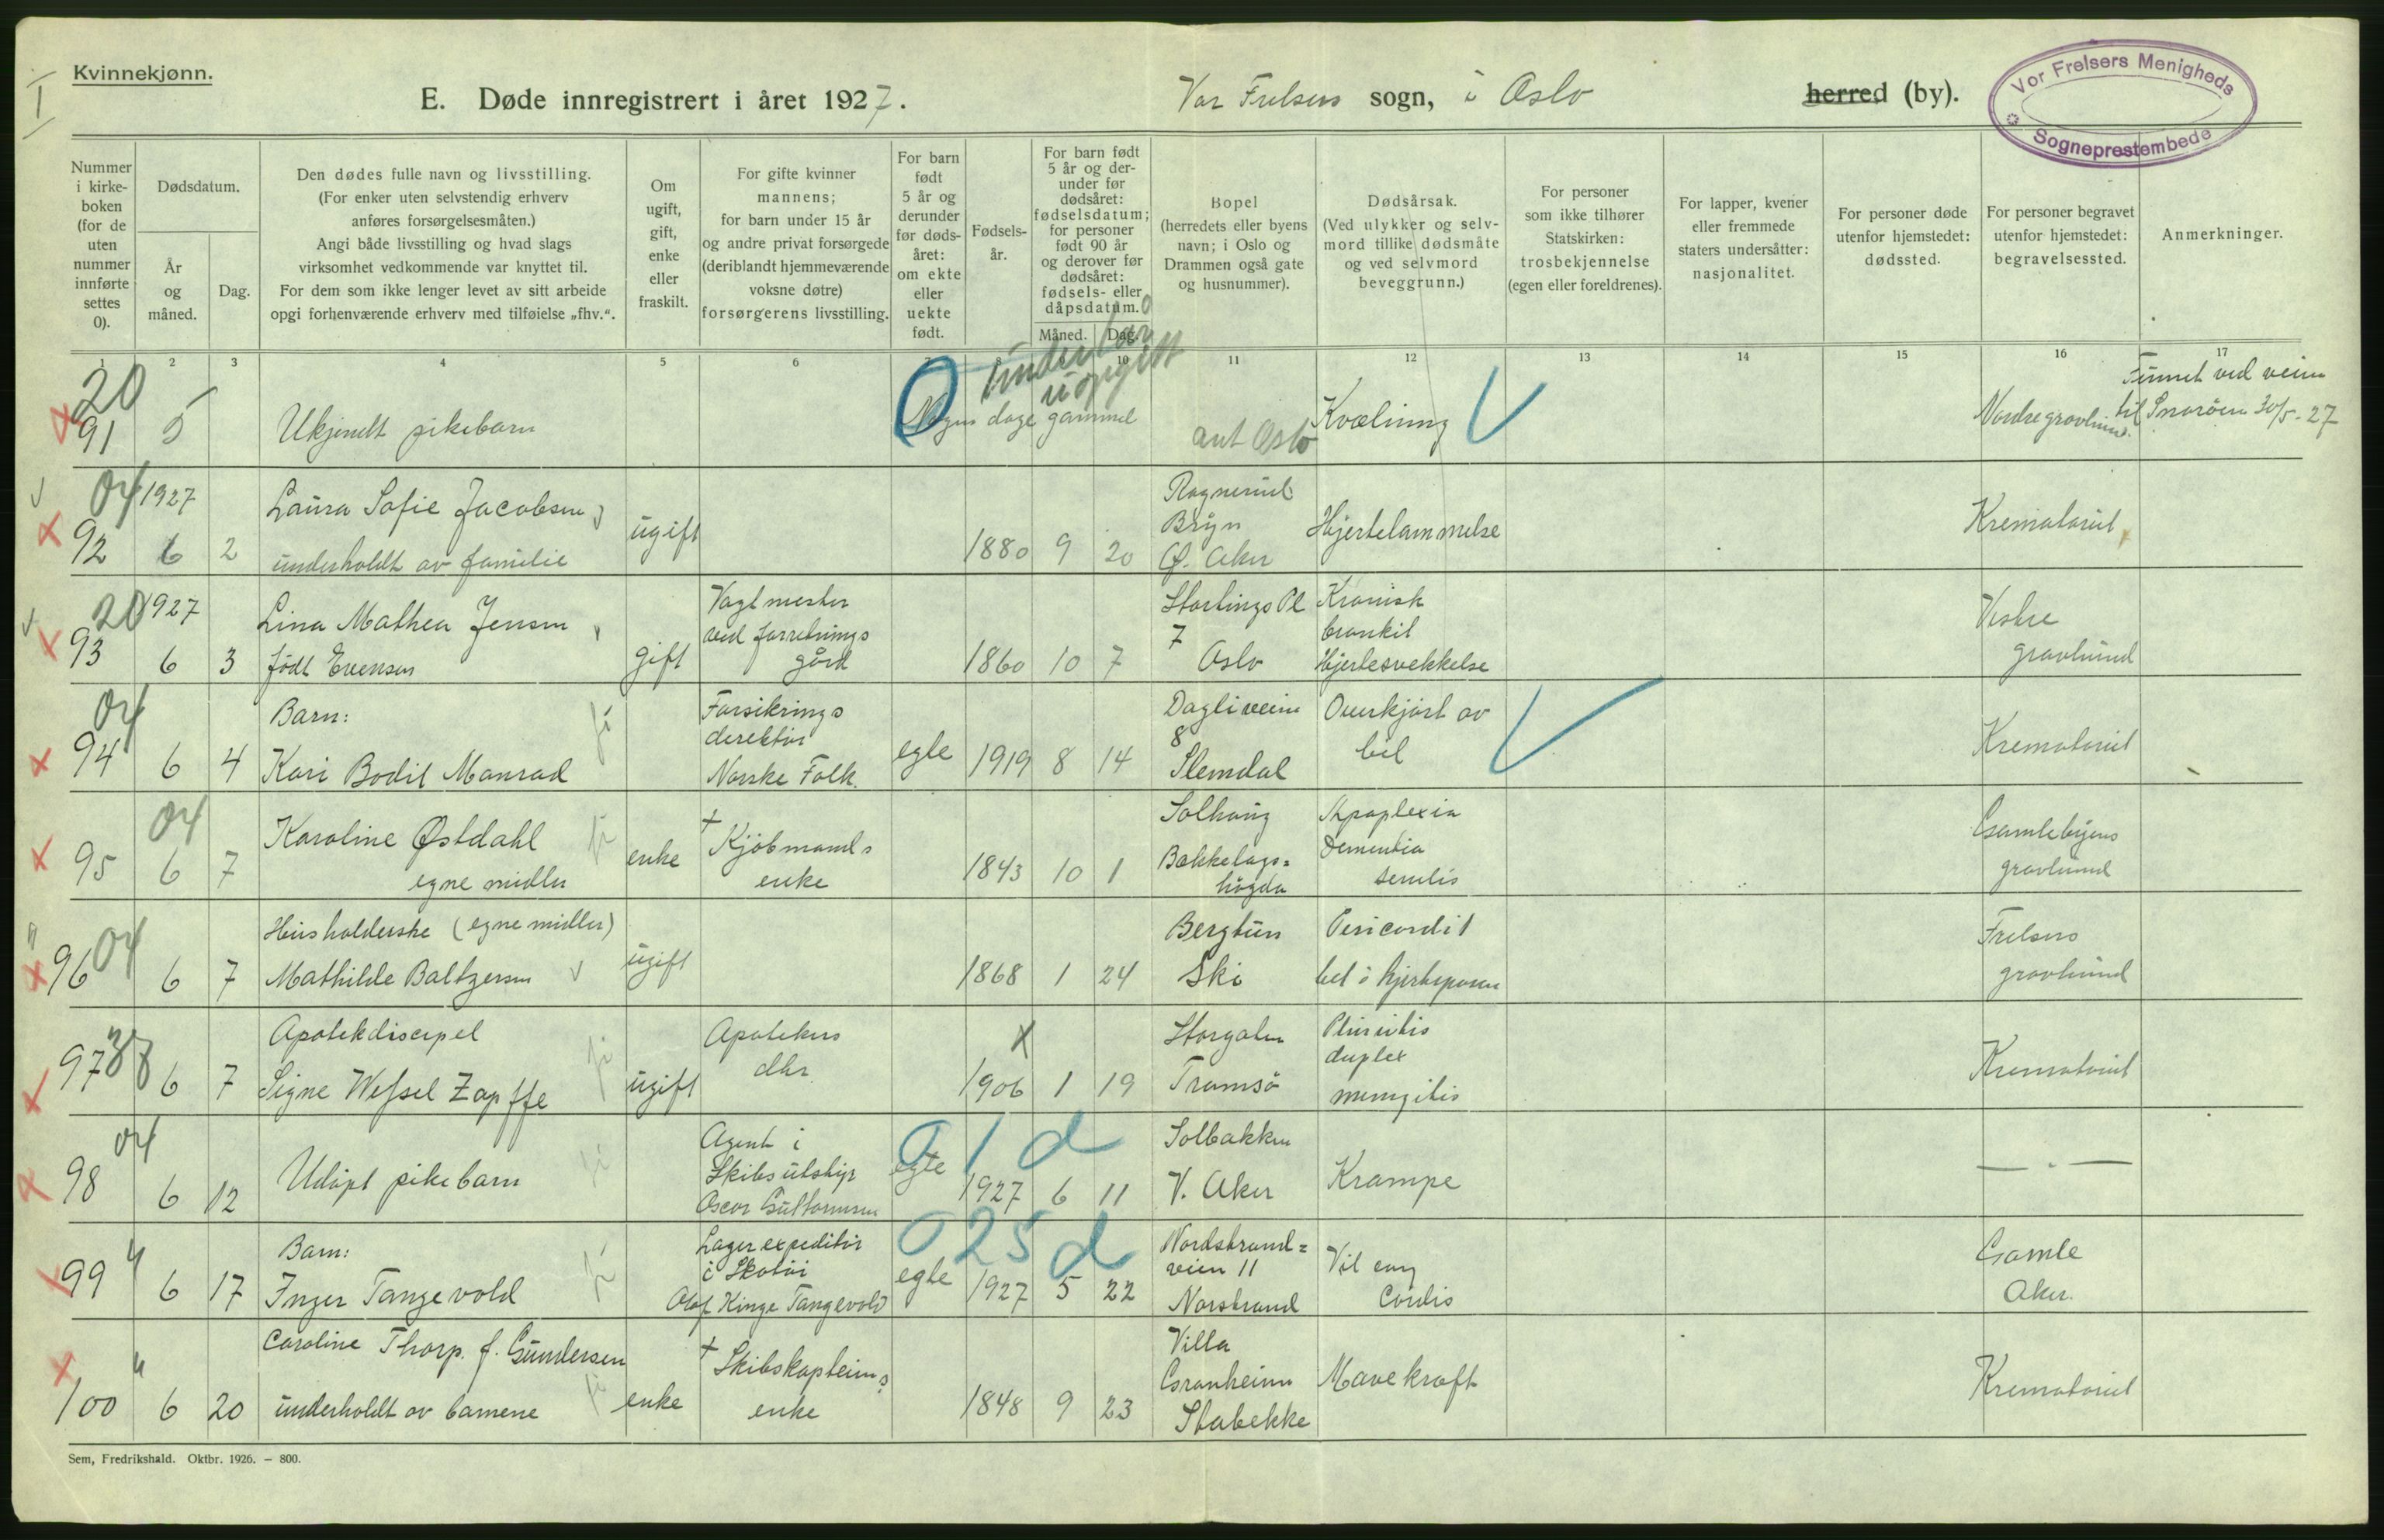 Kvinnekjønn.
I
E. Døde innregistrert i året 1927.
Vor Frelsers sogn, i Oslo herred (by).
Vor Frelsers Menigheds
Sogneprestembede
Nummer i kirkeboken (for de uten nummer innførte settes 0).
Dødsdatum.
År og måned.
Dag.
Den dødes fulle navn og livsstilling.
(For enker uten selvstendig erhverv
anføres forsørgelsesmåten.)
Angi både livsstilling og hvad slags
virksomhet vedkommende var knyttet til.
For dem som ikke lenger levet av sitt arbeide
opgi forhenværende erhverv med tilføielse „fhv.“.
Om ugift, gift, enke eller fraskilt.
For gifte kvinner
mannens;
for barn under 15 år
og andre privat forsørgede
(deriblandt hjemmeværende
voksne døtre)
forsørgerens livsstilling.
For barn født 5 år og derunder før dødsåret: om ekte eller uekte født.
Fødselsår.
For barn født 5 år og derunder før dødsåret: fødselsdatum; for personer født 90 år og derover før dødsåret: fødsels- eller dåpsdatum.
Måned. Dag.
Bopel
(herredets eller byens
navn; i Oslo og
Drammen også gate
og husnummer).
Dødsårsak.
(Ved ulykker og selvmord tillike dødsmåte
og ved selvmord
beveggrunn.)
For personer
som ikke tilhører
Statskirken:
trosbekjennelse
(egen eller foreldrenes).
For lapper, kvener
eller fremmede
staters undersåtter:
nasjonalitet.
For personer døde
utenfor hjemstedet:
dødssted.
For personer begravet
utenfor hjemstedet:
begravelsessted.
Anmerkninger.
1 2 3 4 5 6 7 8 9 10 11 12 13 14 15 16 17
20
91 5 Ukjendt pikebarn
Nogen dage gammel
ant Oslo
Kvælning
Nordre gravlund.
Funnet ved veien
til Snarøen 30/5-27
04 1927
92 6 2
Laura Sofie Jacobsen
underholdt av familie
ugift
1880 9 20
Bryn
Ø. Aker
Hjertelammelse
Krematoriet
20 1927
93 6 3
Lina Mathea Jensen
født Evensen
gift
Vagtmester
ved forretnings
gård
1860 10 7
Stortings Pl
7
Oslo
Kronisk
bronkit
Hjertesvekkelse
Vestre
gravlund
04
94 6 4
Barn:
Kari Bodil Monrad
Forsikrings
direktør
Norske Folk.
egte
1919 8 14
Dagliveien
8
Slemdal
Overkjørt av
bil
Krematoriet
04
95 6 7
Karoline Østdahl
egne midler
enke
† Kjøbmands
enke
1843 10 1
Solhaug
Bækkelags=
høgda
Apoplexia
Dementia
senilis
Gamlebyens
gravlund
04
96 6 7
Husholderske (egne midler)
Mathilde Baltzersen
ugift
1868 1 24
Bergtun
Ski
Pericardit
bet i hjerteposen
Frelsers
gravlund
38
97 6 7
Apotekdiscipel
Signe Wessel Zapffe
ugift
Apotekers
dtr.
x
1906 1 19
Storgaten
Tromsø
Pleuritis
duplex
meningitis
Krematoriet
04
98 6 12
Udøpt pikebarn
Agent i
Skibsutstyr
Oscar Guttormsen
egte
0 1 d
1927 6 11
Solbakken
V. Aker
Krampe
— " —
4
99 6 17
Barn:
Inger Tangevold
Lagerexpeditør
i Skotøi
Olaf Kinge Tangevold
egte
0 25 d
1927 5 22
Nordstrand=
veien 11
Norstrand
Vit cong
Cordis
Gamle
Aker.
4
100 6 20
Caroline Thorp. f. Gundersen
underholdt av barnene
enke
† Skibskapteins
enke
1848 9 23
Villa
Granheim
Stabekke
Mavekræft
Krematoriet
Sem, Fredrikshald. Oktbr. 1926. – 800.